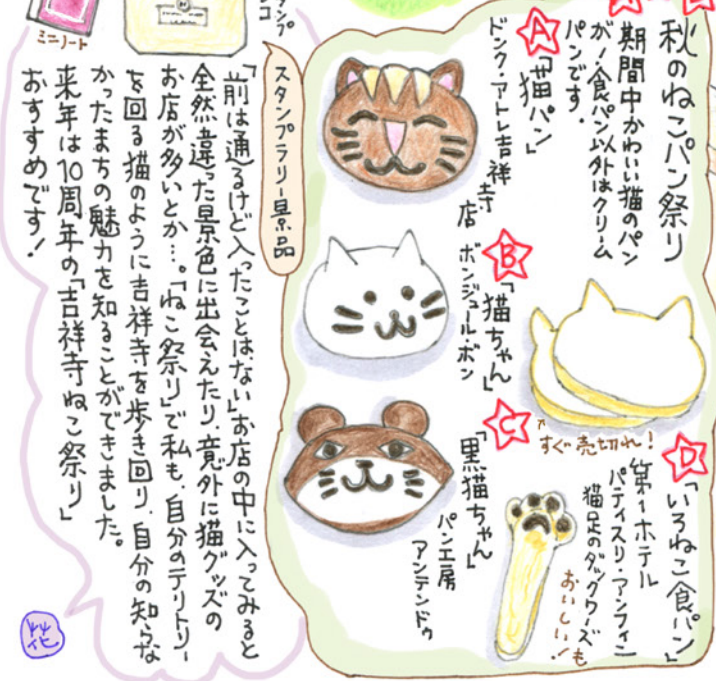 秋のねこパン祭り
期間中かわいい猫のパン
が！食パン以外はクリーム
パンです。
A
「猫パン」
ドンク・アトレ吉祥寺店
B
「猫ちゃん」
ボンジュール・ボン
C
「黒猫ちゃん」
パン工房
アンテンドゥ
すぐ売切れ！
D
「いろねこ食パン」
第一ホテル
パティスリ・アンフィニ
猫足のダックワーズも
おいしい！
スタンプラリー景品
ミニノート
「前は通るけど入ったことはない」お店の中に入ってみると
全然違った景色に出会えたり、意外に猫グッズの
お店が多いとか…。「ねこ祭り」で私も、自分のテリトリー
を回る猫のように吉祥寺を歩き回り、自分の知らな
かったまちの魅力を知ることができました。
来年は10周年の「吉祥寺ねこ祭り」
おすすめです！
花